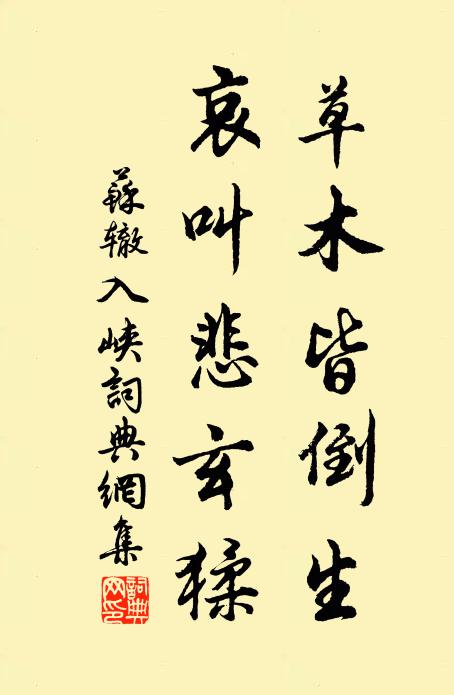 草木皆倒生
哀叫悲玄猱
蘇辙入峽詞典網集
詞典网印